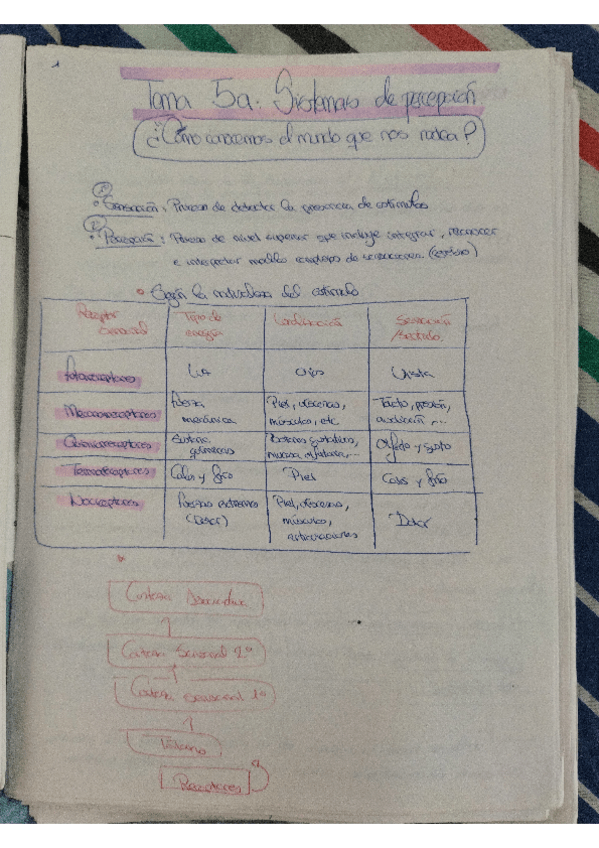 Tema 5a: Sistemas de percepción
¿Cómo conocemos el mundo que nos rodea?
Sensación: Proceso de detectar la presencia de estímulos
Percepción: Proceso de nivel superior que incluye integrar, reconocer
e interpretar modelos complejos de sensaciones (cerebro)
Según la naturaleza del estímulo
Receptor sensorial | Tipo de energía | Localización | Sensación /sentido
Fotorreceptores | Luz | Ojos | Vista
Mecanorreceptores | Fuerza mecánica | Piel, vísceras, músculos, etc | Tacto, presión, audición,...
Quimiorreceptores | Sustanc. químicas | Botones gustativos, mucosa olfatoria,... | Olfato y gusto
Termorreceptores | Calor y frío | Piel | Calor y frío
Nociceptores | Fuerzas extremas (Dolor) | Piel, vísceras, músculos, articulaciones | Dolor
Corteza Asociativa
Corteza Sensorial 2º
Corteza sensorial 1º
Tálamo
Receptores